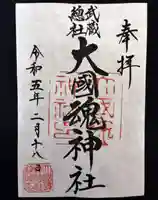 奉拝
武蔵
總社
大國魂神社
令和五年二月十八日